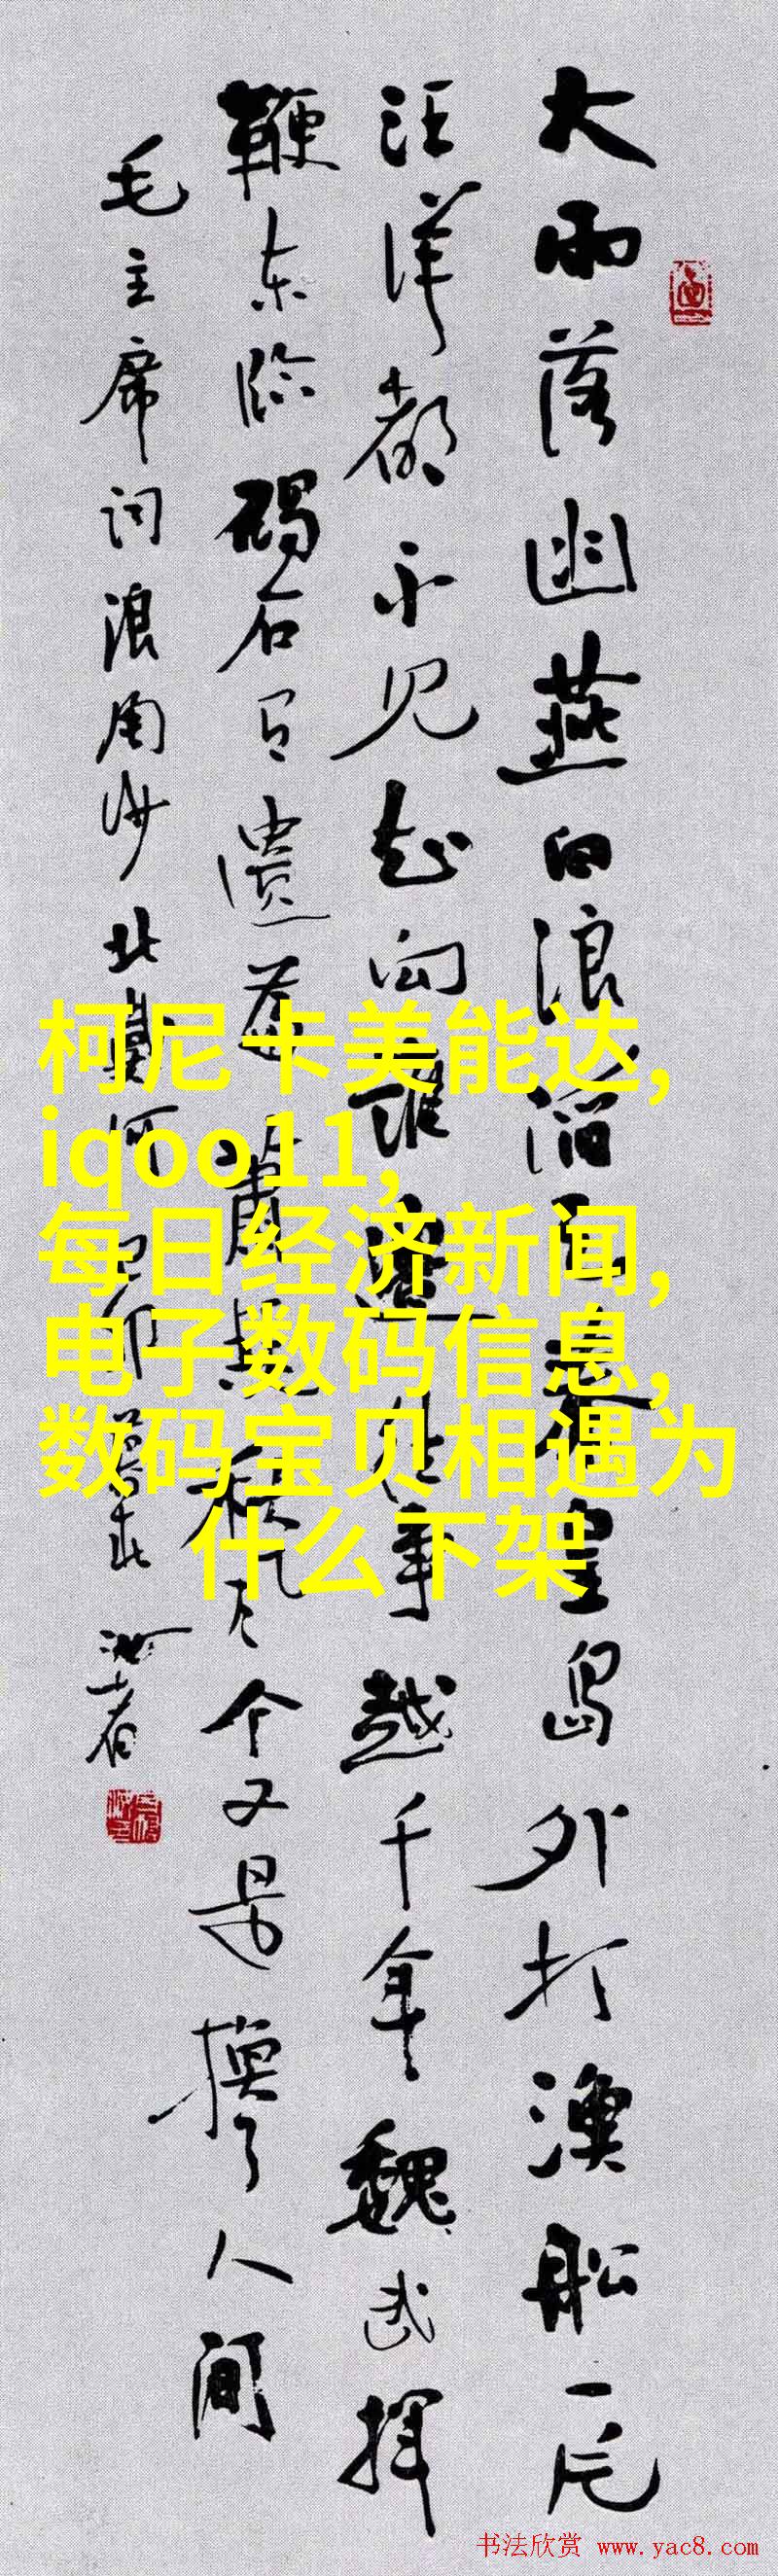 大雨落幽燕白浪滔天秦皇岛外打渔船一片
汪洋都不见知向谁邊往事越千年魏武揮
鞭东临碣石有遗篇萧瑟秋风今又是换了人间
毛主席词浪淘沙北戴河己卯暮春
柯尼卡美能达,
iqoo11,
每日经济新闻,
电子数码信息,
数码宝贝相遇为
什么下架
书法欣赏 www.yac8.com